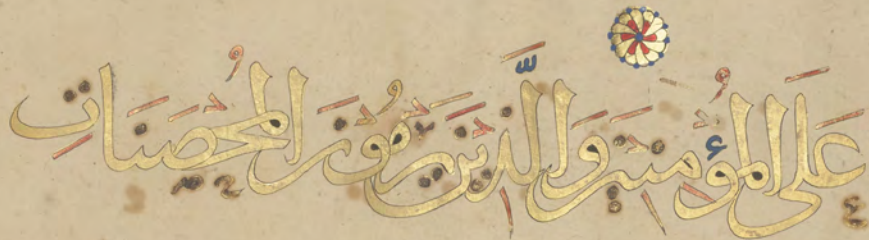 عَلَى الْمُؤْمِنِينَ وَالَّذِينَ يَرْمُونَ الْمُحْصَنَاتِ